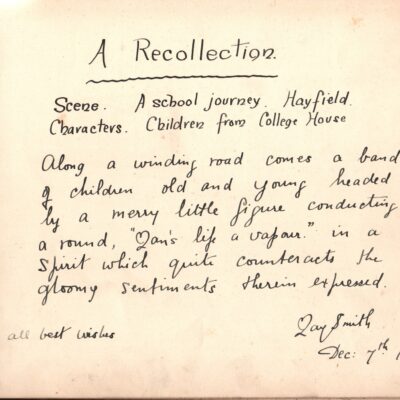 A Recollection.
Scene. A school journey. Hayfield.
Characters. Children from College House
Along a winding road comes a band
of children old and young headed
by a merry little figure conducting
a round, "Man's life a vapour." in a
Spirit which quite counteracts the
gloomy sentiments therein expressed.
all best wishes
May Smith
Dec: 7th 1